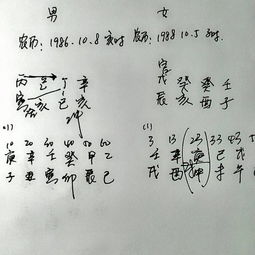 男 女
农历：1986.10.8 亥时 农历：1988.10.5 子时
丙 己 丁 辛 戊 癸 癸 壬
寅 亥 巳 亥 辰 亥 酉 子
冲
10 20 30 40 50 60 3 13 (23) 33 43
庚 辛 壬 癸 甲 乙 壬 辛 庚 己 戊
子 丑 寅 卯 辰 巳 戌 酉 申 未 午